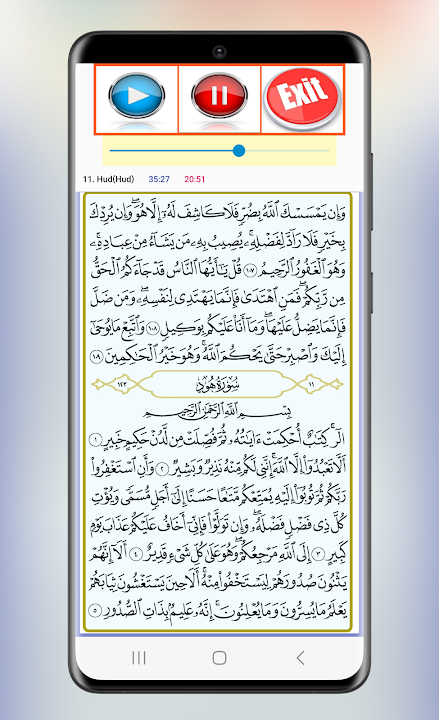 Exit
11. Hud(Hud) 35:27 20:51
وَإِن يَمْسَسْكَ ٱللَّهُ بِضُرٍّ فَلَا كَاشِفَ لَهُۥٓ إِلَّا هُوَۖ وَإِن يُرِدْكَ
بِخَيْرٍ فَلَا رَآدَّ لِفَضْلِهِۦۚ يُصِيبُ بِهِۦ مَن يَشَآءُ مِنْ عِبَادِهِۦۚ
وَهُوَ ٱلْغَفُورُ ٱلرَّحِيمُ ١٠٧ قُلْ يَٰٓأَيُّهَا ٱلنَّاسُ قَدْ جَآءَكُمُ ٱلْحَقُّ
مِن رَّبِّكُمْۖ فَمَنِ ٱهْتَدَىٰ فَإِنَّمَا يَهْتَدِى لِنَفْسِهِۦۖ وَمَن ضَلَّ
فَإِنَّمَا يَضِلُّ عَلَيْهَاۖ وَمَآ أَنَا۠ عَلَيْكُم بِوَكِيلٍ ١٠٨ وَٱتَّبِعْ مَا يُوحَىٰٓ
إِلَيْكَ وَٱصْبِرْ حَتَّىٰ يَحْكُمَ ٱللَّهُۚ وَهُوَ خَيْرُ ٱلْحَٰكِمِينَ ١٠٩
١١ سُورَةُ هُودٍ ١٢٣
بِسْمِ ٱللَّهِ ٱلرَّحْمَٰنِ ٱلرَّحِيمِ
الٓرۚ كِتَٰبٌ أُحْكِمَتْ ءَايَٰتُهُۥ ثُمَّ فُصِّلَتْ مِن لَّدُنْ حَكِيمٍ خَبِيرٍ ١
أَلَّا تَعْبُدُوٓا۟ إِلَّا ٱللَّهَۚ إِنَّنِى لَكُم مِّنْهُ نَذِيرٌ وَبَشِيرٌ ٢ وَأَنِ ٱسْتَغْفِرُوا۟
رَبَّكُمْ ثُمَّ تُوبُوٓا۟ إِلَيْهِ يُمَتِّعْكُم مَّتَٰعًا حَسَنًا إِلَىٰٓ أَجَلٍ مُّسَمًّى وَيُؤْتِ
كُلَّ ذِى فَضْلٍ فَضْلَهُۥۖ وَإِن تَوَلَّوْا۟ فَإِنِّىٓ أَخَافُ عَلَيْكُمْ عَذَابَ يَوْمٍ
كَبِيرٍ ٣ إِلَى ٱللَّهِ مَرْجِعُكُمْۖ وَهُوَ عَلَىٰ كُلِّ شَىْءٍ قَدِيرٌ ٤ أَلَآ إِنَّهُمْ
يَثْنُونَ صُدُورَهُمْ لِيَسْتَخْفُوا۟ مِنْهُۚ أَلَا حِينَ يَسْتَغْشُونَ ثِيَابَهُمْ
يَعْلَمُ مَا يُسِرُّونَ وَمَا يُعْلِنُونَۚ إِنَّهُۥ عَلِيمٌۢ بِذَاتِ ٱلصُّدُورِ ٥